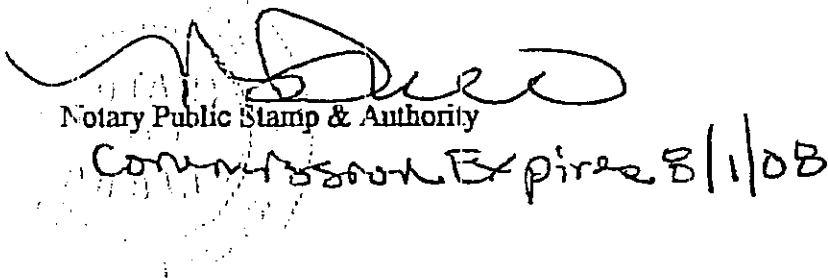 Notary Public Stamp & Authority
Commission Expires 8/1/08